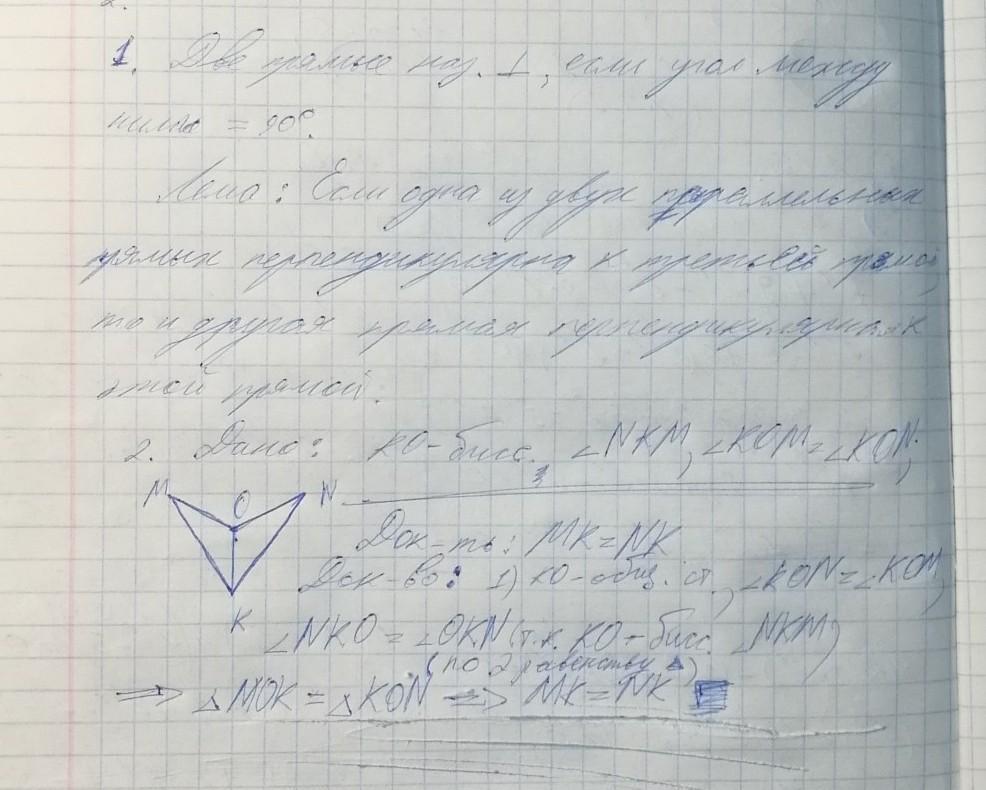 2.
1. Две прямые наз. ⊥, если угол между
ними = 90°.
Лема: Если одна из двух параллельных
прямых перпендикулярна к третьей прямой,
то и другая прямая перпендикулярна к
этой прямой.
2. Дано: KO - бисс. ∠NKM, ∠KOM = ∠KON;
M O N
Док-ть: MK = NK
Док-во: 1) KO - общ. ст., ∠KON = ∠KOM,
K
∠NKO = ∠OKN (т.к. KO - бисс. ∠NKM)
(по 2 равенству △)
⇒ △MOK = △KON ⇒ MK = NK